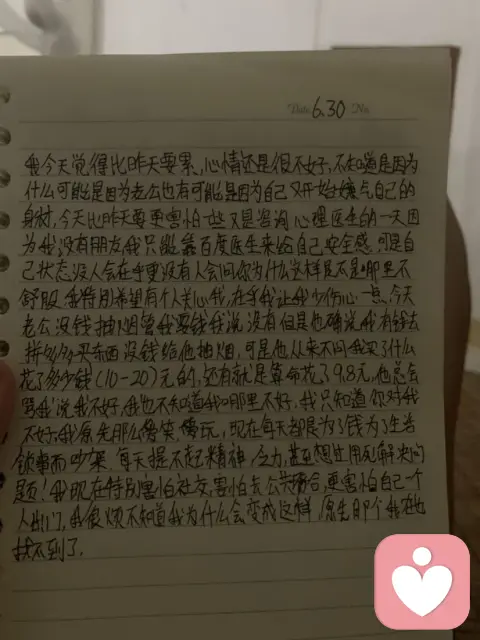 Date 6.30 No.
我今天觉得比昨天要累,心情还是很不好,不知道是因为
什么可能是因为老公也有可能是因为自己又开始嫌气自己的
身材,今天比昨天要更害怕一些又是咨询心理医生的一天因
为我没有朋友我只能靠百度医生来给自己安全感,可是自
己状态没人会在乎更没有人会问你为什么这样是不是哪里不
舒服,我特别希望有个人关心我,在乎我让我少伤心一点,今天
老公没钱抽烟管我要钱我说没有但是也确说我有钱去
拼多多买东西没钱给他抽烟,可是他从来不问我买了什么
花了多少钱(10-20)元的,还有就是算命花了9.8元,他总会
骂我说我不好,我也不知道我哪里不好,我只知道你对我
不好,我原先那么爱笑,爱玩,现在每天都是为了钱为了生活
锁事而吵架,每天提不起精神,乏力,甚至想过用死解决问
题!我现在特别害怕社交,害怕去公共场合,更害怕自己一个
人出门,我很烦不知道我为什么会变成这样,原先的那个我在也
找不到了.